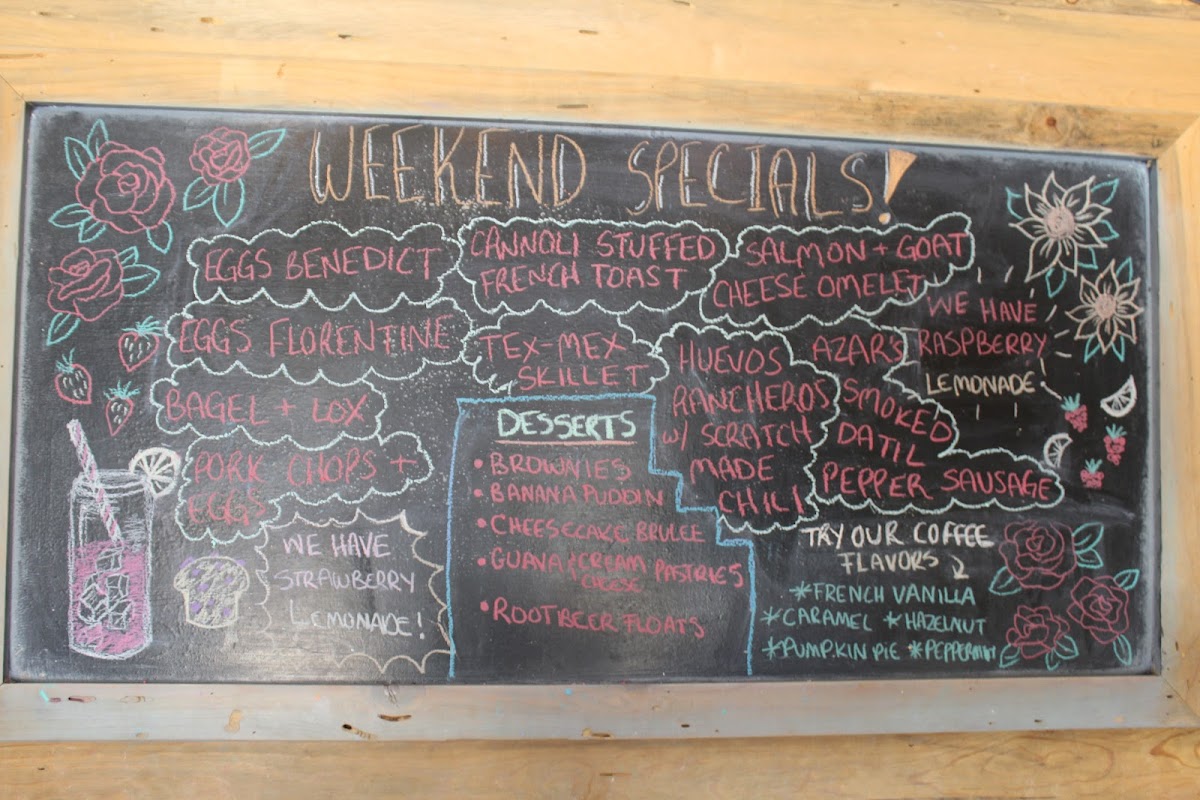 WEEKEND SPECIALS!
EGGS BENEDICT
EGGS FLORENTINE
BAGEL + LOX
PORK CHOPS +
EGGS
CANNOLI STUFFED
FRENCH TOAST
TEX-MEX
SKILLET
SALMON + GOAT
CHEESE OMELET
HUEVOS
RANCHEROS
W/ SCRATCH
MADE
CHILI
AZAR'S
SMOKED
DATIL
PEPPER SAUSAGE
WE HAVE
RASPBERRY
LEMONADE!
WE HAVE
STRAWBERRY
LEMONADE!
DESSERTS
• BROWNIES
• BANANA PUDDIN
• CHEESECAKE BRULEE
• GUAVA & CREAM PASTRIES
CHEESE
• ROOTBEER FLOATS
TRY OUR COFFEE
FLAVORS
*FRENCH VANILLA
*CARAMEL *HAZELNUT
*PUMPKIN PIE *PEPPERMINT